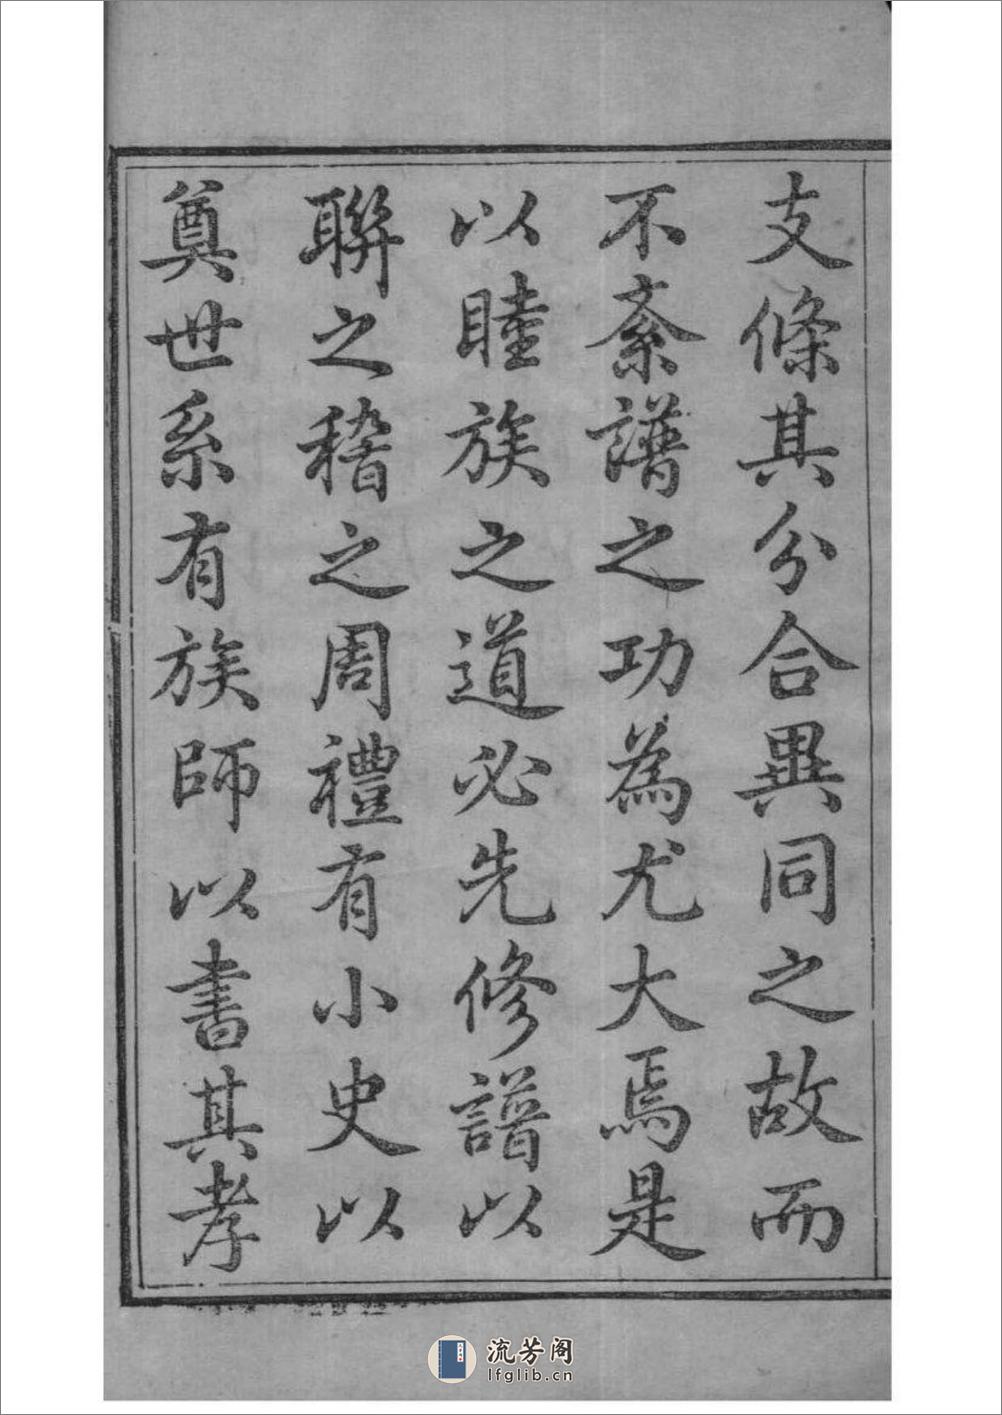 支條其分合異同之故而
不紊譜之功為尤大焉是
以睦族之道必先修譜以
聯之稽之周禮有小史以
奠世系有族師以書其孝
流芳阁
lfglib.cn